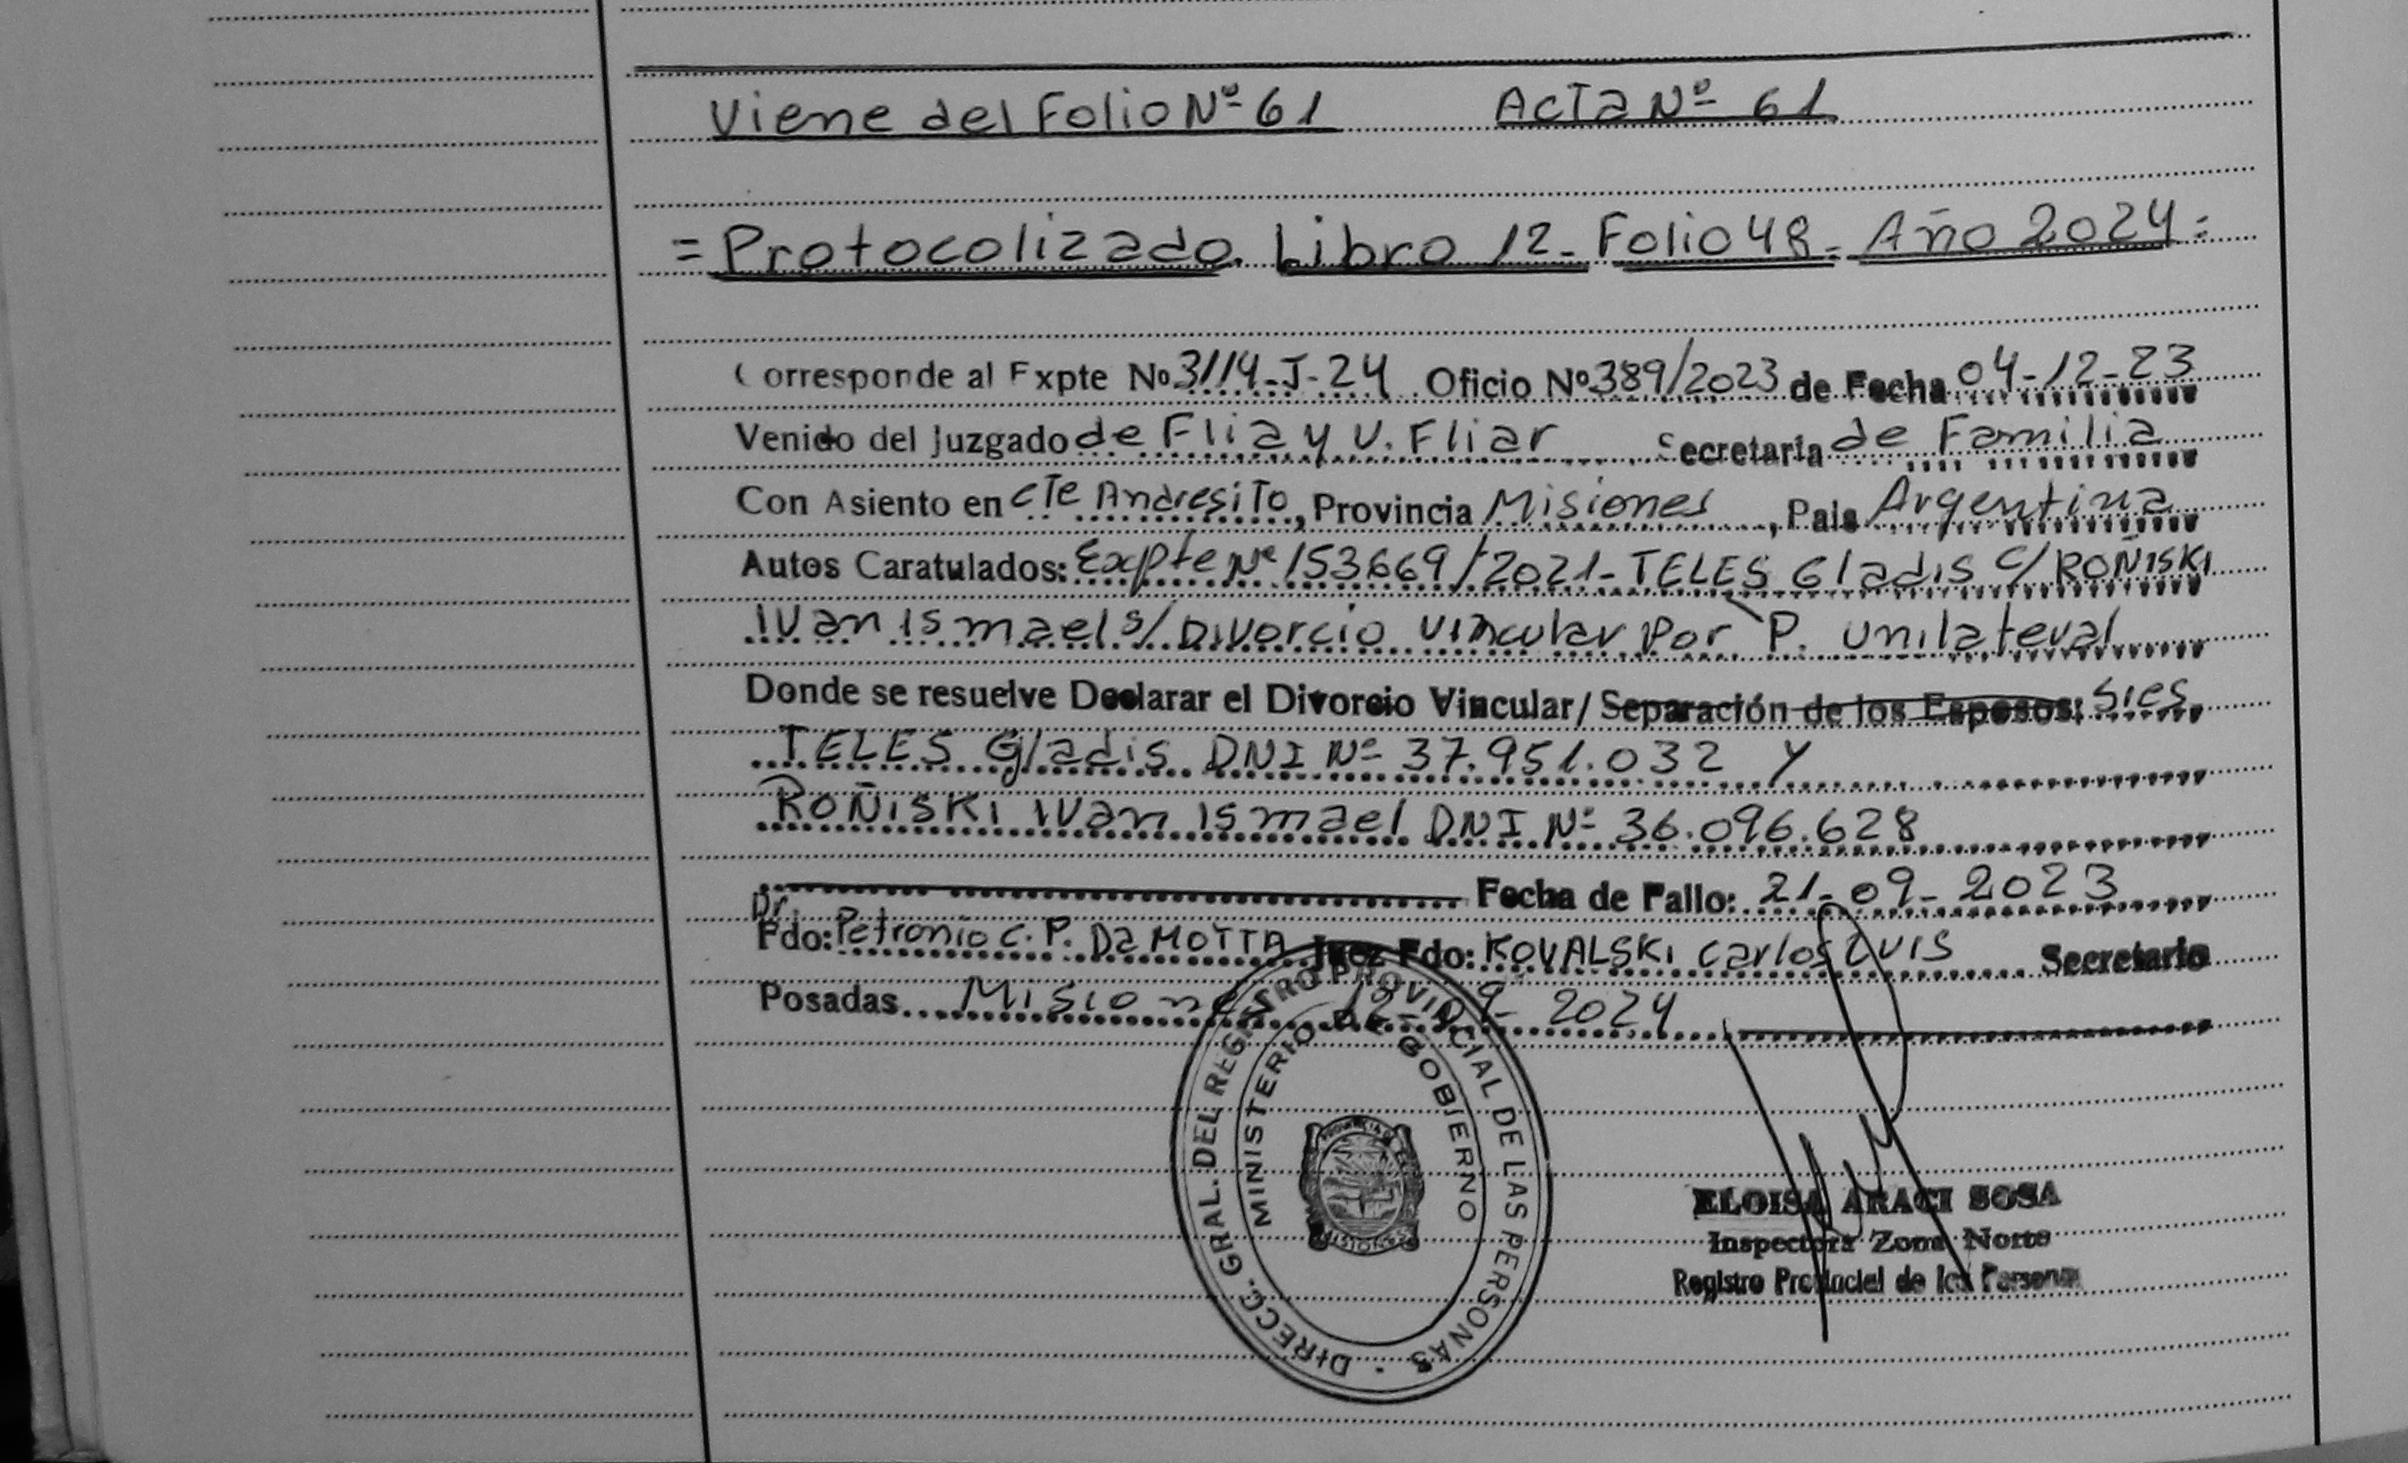 Viene del Folio Nº 61 Acta Nº 61
= Protocolizado. Libro 12_ Folio 48_ Año 2024=
Corresponde al Expte No 3114-J-24 Oficio Nº 389/2023 de Fecha 04-12-23
Venido del Juzgado de Flia y V. Fliar Secretaria de Familia
Con Asiento en Cte Andresito, Provincia Misiones, Pais Argentina
Autos Caratulados: Expte Nº 153669/2021- TELES Gladis c/ ROÑISKI
IVan ismael s/ Divorcio Vincular Por P. unilateral
Donde se resuelve Declarar el Divorcio Vincular/ Separación de los Esposos: sres
TELES Gladis DNI Nº 37.951.032 Y
ROÑISKI IVan ismael DNI Nº 36.096.628
Fecha de Fallo: 21-09-2023
Dr.
Fdo: Petronio C. P. Da MOTTA Juez Fdo: KOVALSKI Carlos LUIS Secretario
Posadas Misiones 12-09-2024
DIRECC. GRAL. DEL REGISTRO PROVINCIAL DE LAS PERSONAS
MINISTERIO DE GOBIERNO
PROVINCIA DE
MISIONES
ELOISA ARACI SOSA
Inspectora Zona Norte
Registro Provincial de las Personas